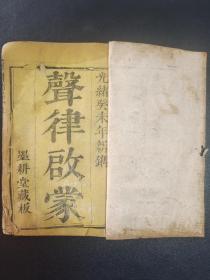 光緒癸未年新鐫
聲律啟蒙
墨耕堂藏板